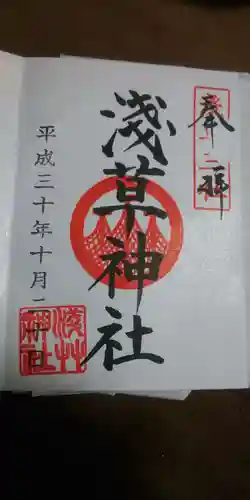 奉拝
浅草神社
平成三十年十月二十日
浅草神社